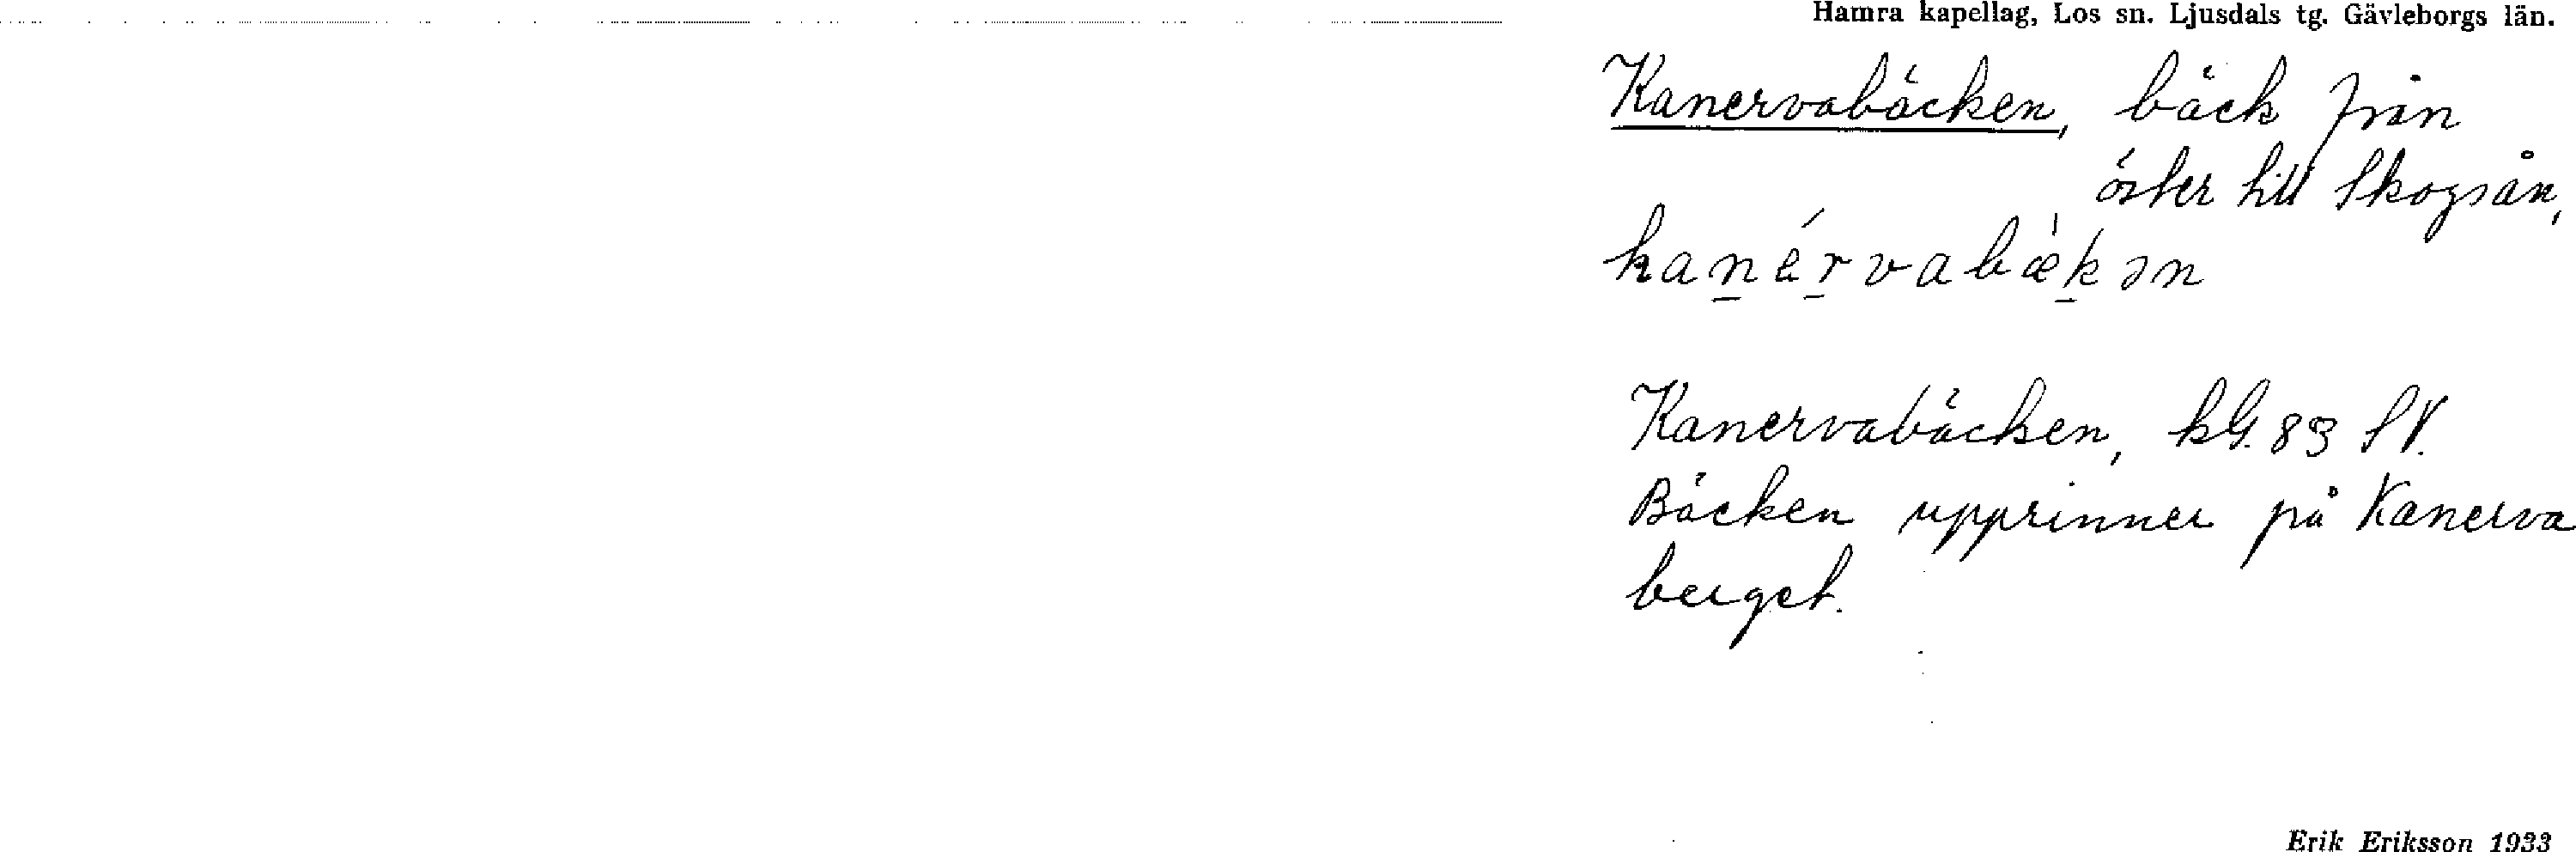 Hamra kapellag, Los sn. Ljusdals tg. Gävleborgs län.
Kanervabäcken, bäck från
öster till Skogsån,
kanérvabæ̀kən
Kanervabäcken, kbl. 83 SV.
Bäcken upprinner på Kanerva
berget.
Erik Eriksson 1933